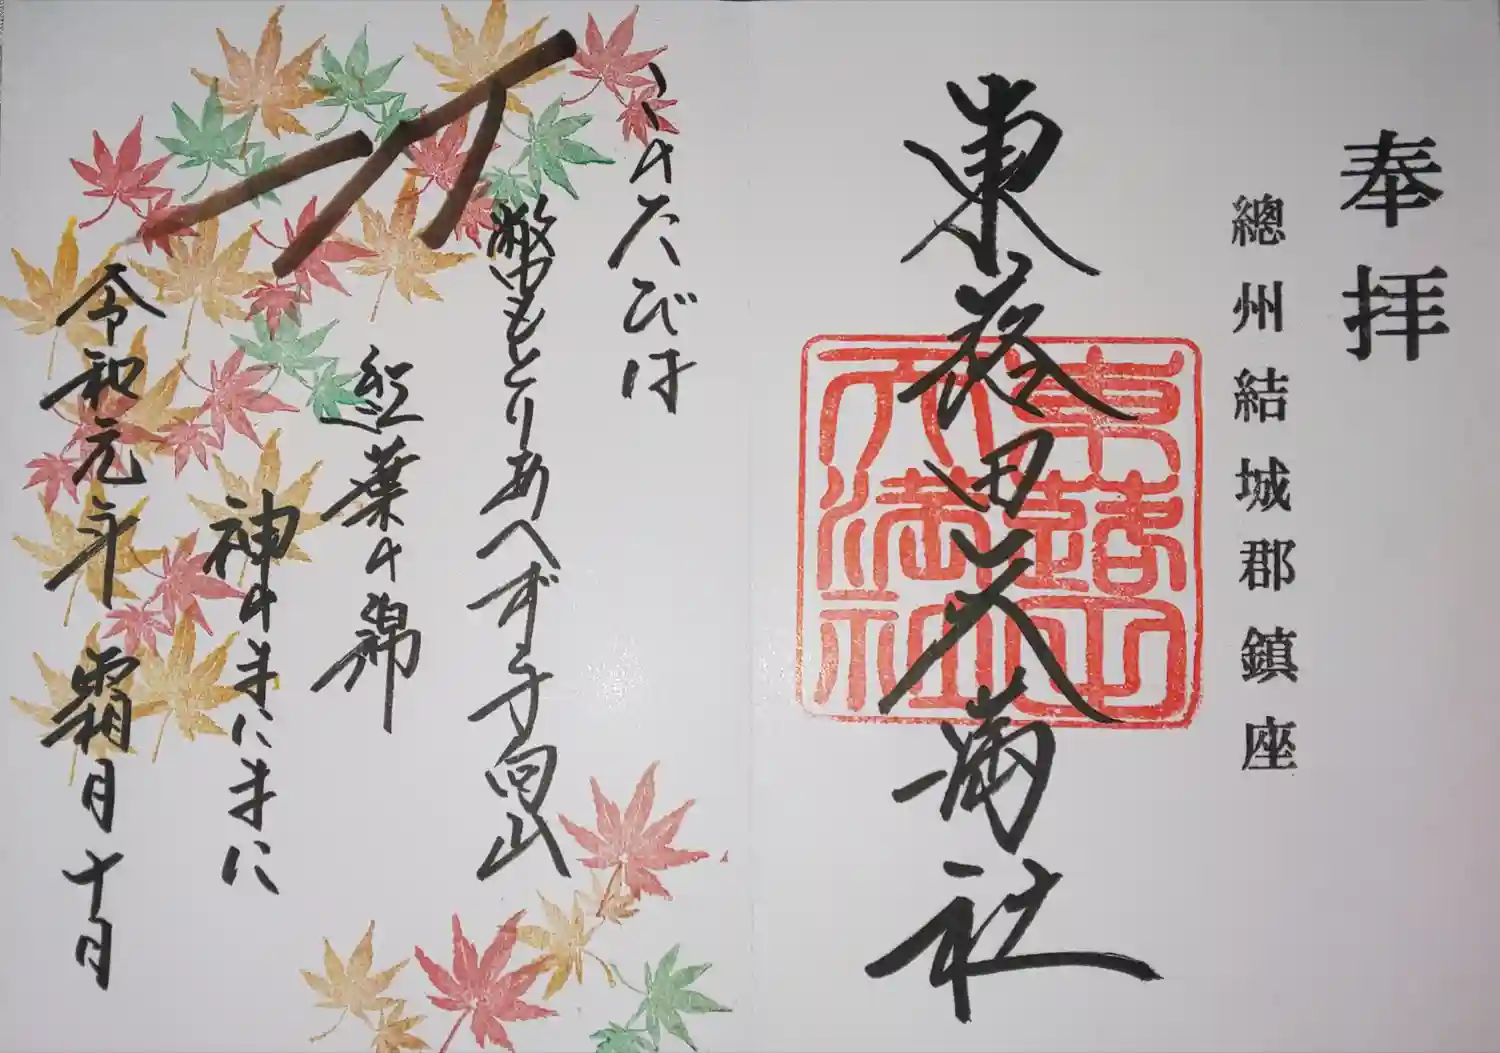 奉拝
總州結城郡鎮座
東蕗田天満社
このたびは
幣もとりあへず手向山
紅葉の錦
神のまにまに
令和元年霜月十日